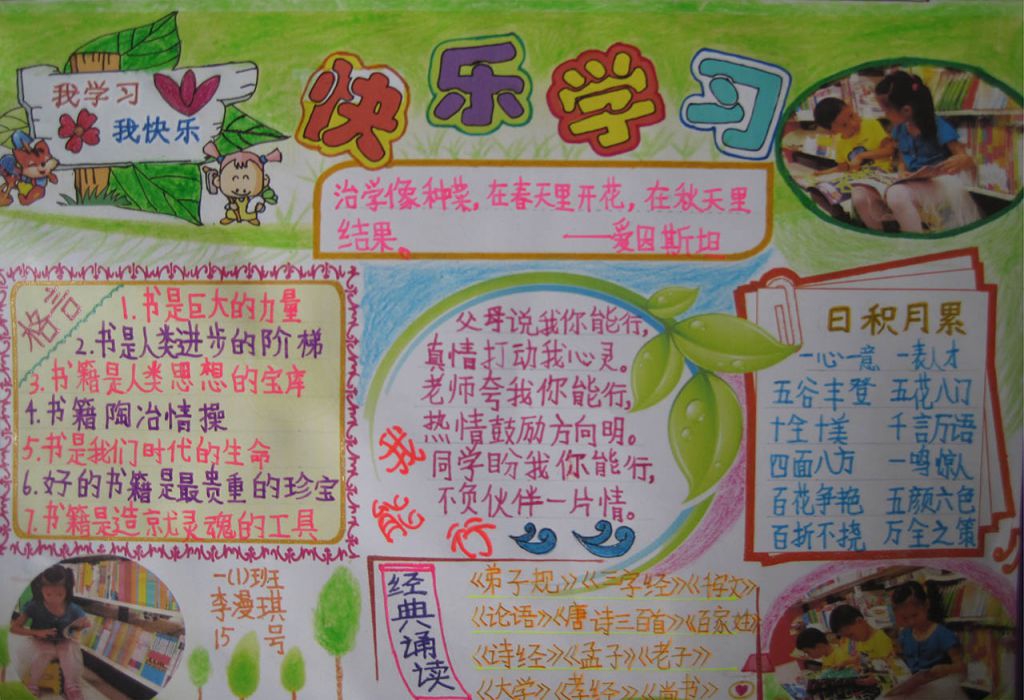 我学习
我快乐
快乐学习
治学像种菜,在春天里开花,在秋天里
结果。 ——爱因斯坦
格言
1.书是巨大的力量
2.书是人类进步的阶梯
3.书籍是人类思想的宝库
4.书籍陶冶情操
5.书是我们时代的生命
6.好的书籍是最贵重的珍宝
7.书籍是造就灵魂的工具
父母说我你能行,
真情打动我心灵。
老师夸我你能行,
热情鼓励方向明。
同学盼我你能行,
不负伙伴一片情。
我能行
日积月累
一心一意 一表人才
五谷丰登 五花八门
十全十美 千言万语
四面八方 一鸣惊人
百花争艳 五颜六色
百折不挠 万全之策
一(1)班
李漫琪
15号
经典诵读
《弟子规》《三字经》《千字文》
《论语》《唐诗三百首》《百家姓》
《诗经》《孟子》《老子》
《大学》《孝经》《尚书》